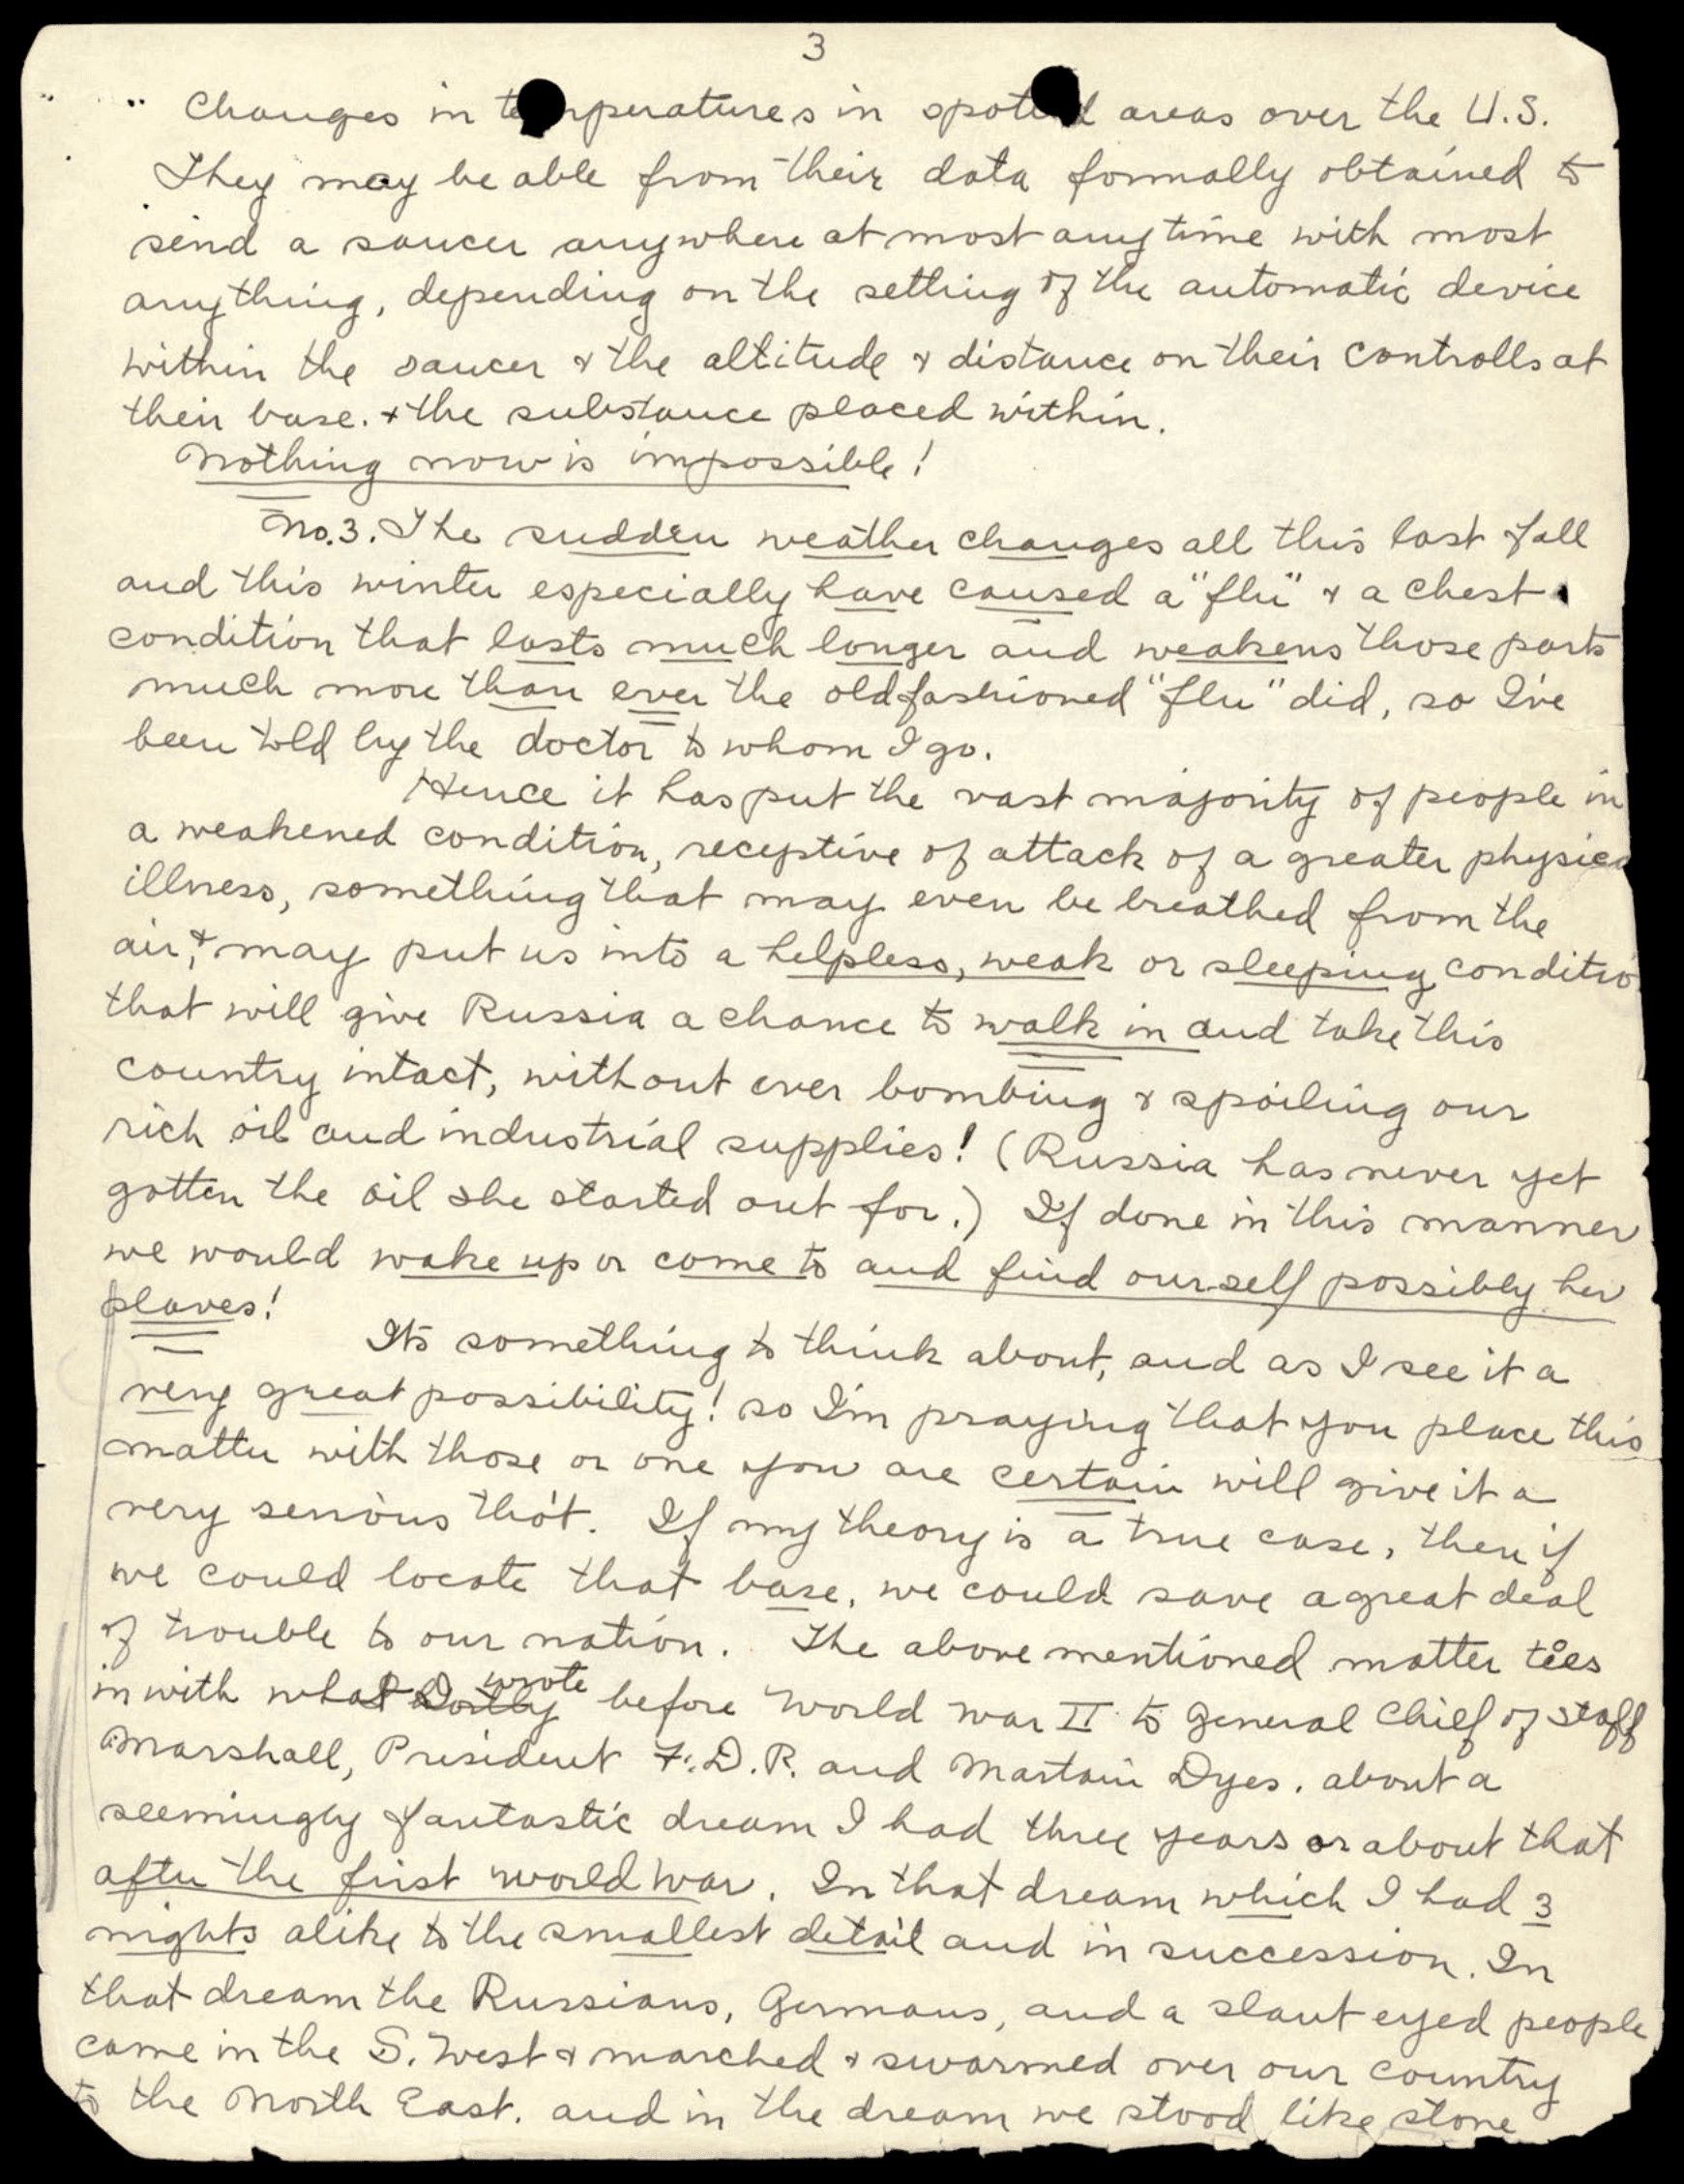 3
" " Changes in temperatures in spoted areas over the U.S.
They may be able from their data formally obtained to
send a saucer anywhere at most any time with most
anything, depending on the setting of the automatic device
within the saucer & the altitude & distance on their controlls at
their base. & the substance placed within.
Nothing now is impossible!
No. 3. The sudden weather changes all this last fall
and this winter especially have caused a "flu" & a chest
condition that lasts much longer and weakens those parts
much more than ever the oldfashioned "flu" did, so I've
been told by the doctor to whom I go.
Hence it has put the vast majority of people in
a weakened condition, receptive of attack of a greater physica
illness, something that may even be breathed from the
air, & may put us into a helpless, weak or sleeping conditio
that will give Russia a chance to walk in and take this
country intact, without ever bombing & spoiling our
rich oil and industrial supplies! (Russia has never yet
gotten the oil she started out for.) If done in this manner
we would wake up or come to and find ourself possibly her
slaves!
Its something to think about, and as I see it a
very great possibility! so I'm praying that you place this
matter with those or one you are certain will give it a
very serious tho't. If my theory is a true case, then if
we could locate that base, we could save a great deal
of trouble to our nation. The above mentioned matter ties
in with what I wrote before World War II to General Chief of Staff
Marshall, President F.D.R. and Martain Dyes. about a
seemingly fantastic dream I had three years or about that
after the first world war. In that dream which I had 3
nights alike to the smallest detail and in succession. In
that dream the Russians, Germans, and a slant eyed people
came in the S. West & marched & swarmed over our country
to the North East. and in the dream we stood like stone